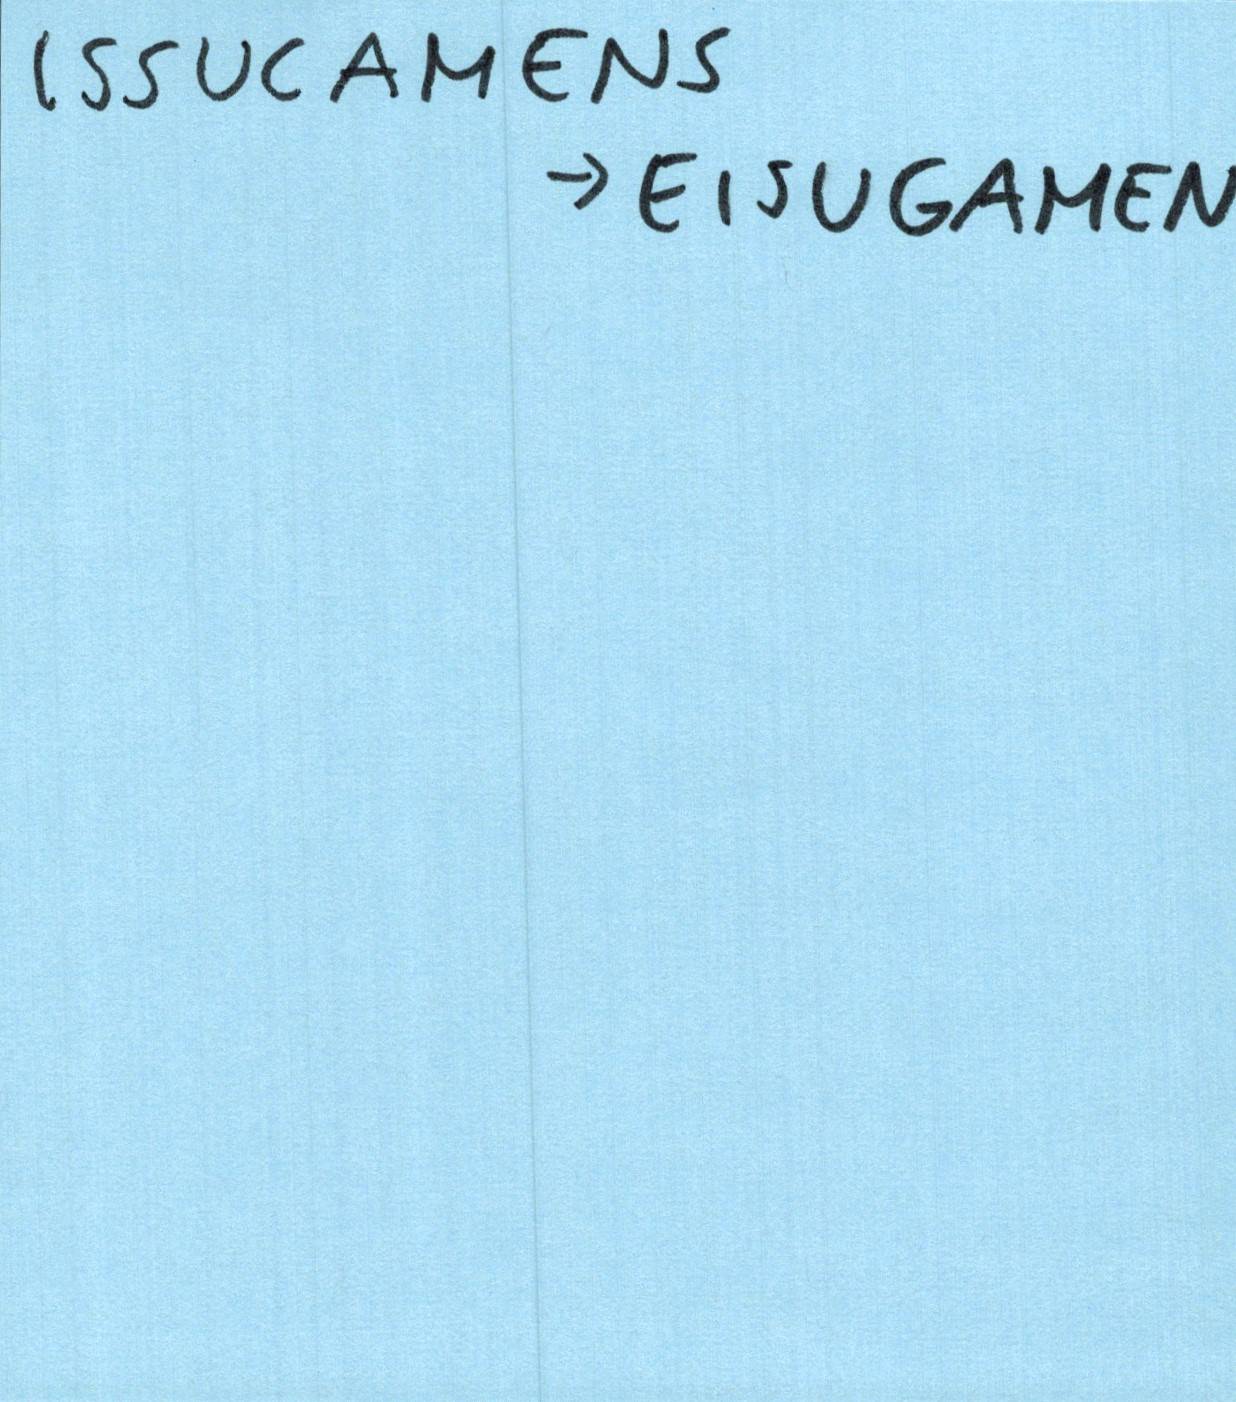 ISSUCAMENS
→ EISUGAMEN